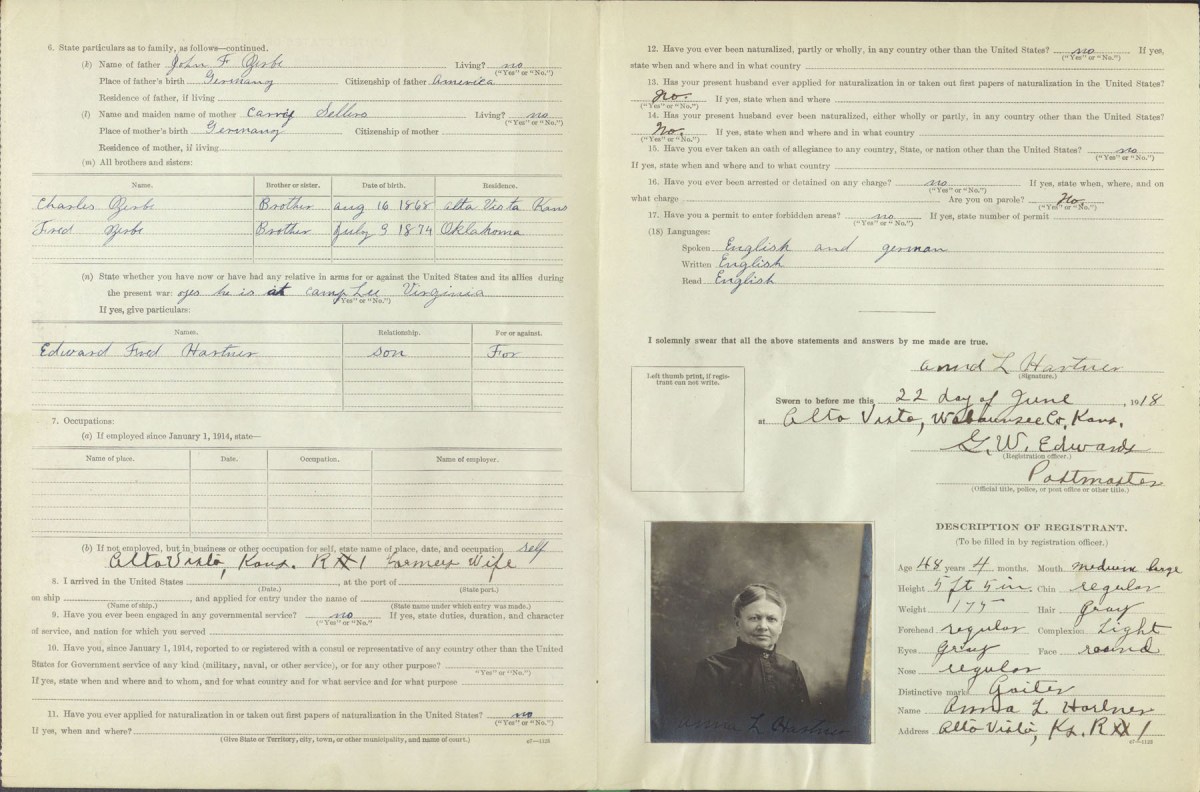 6. State particulars as to family, as follows—continued.
(k) Name of father John F Zerbe Living? no
("Yes" or "No.")
Place of father's birth Germany Citizenship of father America
Residence of father, if living
(l) Name and maiden name of mother Carrie Sellers Living? no
("Yes" or "No.")
Place of mother's birth Germany Citizenship of mother
Residence of mother, if living
(m) All brothers and sisters:
Name. Brother or sister. Date of birth. Residence.
Charles Zerbe Brother aug 16 1868 alta Vista Kans
Fred Zerbe Brother July 9 1874 Oklahoma
(n) State whether you have now or have had any relative in arms for or against the United States and its allies during
the present war: yes he is at camp Lee Virginia
"Yes" or "No.")
If yes, give particulars:
Names. Relationship. For or against.
Edward Fred Hartner son For
7. Occupations:
(a) If employed since January 1, 1914, state—
Name of place. Date. Occupation. Name of employer.
(b) If not employed, but in business or other occupation for self, state name of place, date, and occupation self
Alta Vista, Kans. R#1 Farmers Wife
8. I arrived in the United States , at the port of
(Date.) (State port.)
on ship , and applied for entry under the name of
(Name of ship.) (State name under which entry was made.)
9. Have you ever been engaged in any governmental service? no If yes, state duties, duration, and character
("Yes" or "No."
of service, and nation for which you served
10. Have you, since January 1, 1914, reported to or registered with a consul or representative of any country other than the United
States for Government service of any kind (military, naval, or other service), or for any other purpose?
"Yes" or "No.")
If yes, state when and where and to whom, and for what country and for what service and for what purpose
11. Have you ever applied for naturalization in or taken out first papers of naturalization in the United States? no
("Yes" or "No.")
If yes, when and where?
(Give State or Territory, city, town, or other municipality, and name of court.) c7—1128
12. Have you ever been naturalized, partly or wholly, in any country other than the United States? no If yes,
("Yes" or "No.")
state when and where and in what country
13. Has your present husband ever applied for naturalization in or taken out first papers of naturalization in the United States?
No. If yes, state when and where
("Yes" or "No.")
14. Has your present husband ever been naturalized, either wholly or partly, in any country other than the United States?
No. If yes, state when and where and in what country
("Yes" or "No.")
15. Have you ever taken an oath of allegiance to any country, State, or nation other than the United States? no
("Yes" or "No.")
If yes, state when and where and to what country
16. Have you ever been arrested or detained on any charge? no If yes, state when, where, and on
("Yes" or "No.")
what charge Are you on parole? No.
("Yes" or "No.")
17. Have you a permit to enter forbidden areas? no If yes, state number of permit
("Yes" or "No.")
(18) Languages:
Spoken English and german
Written English
Read English
I solemnly swear that all the above statements and answers by me made are true.
Left thumb print, if registrant can not write.
Anna L Hartner
(Signature.)
Sworn to before me this 22 day of June , 1918
at Alta Vista, Wabaunsee Co, Kans.
G. W. Edwards
(Registration officer.)
Postmaster
(Official title, police, or post office or other title.)
DESCRIPTION OF REGISTRANT.
(To be filled in by registration officer.)
Age 48 years 4 months. Mouth medium large
Height 5 ft 5 in. Chin regular
Weight 175 Hair Gray
Forehead regular Complexion Light
Eyes Gray Face round
Nose regular
Distinctive mark Goiter
Name Anna L Hartner
Address Alta Vista, Ks. R#1
c7—1128
Anna L Hartner